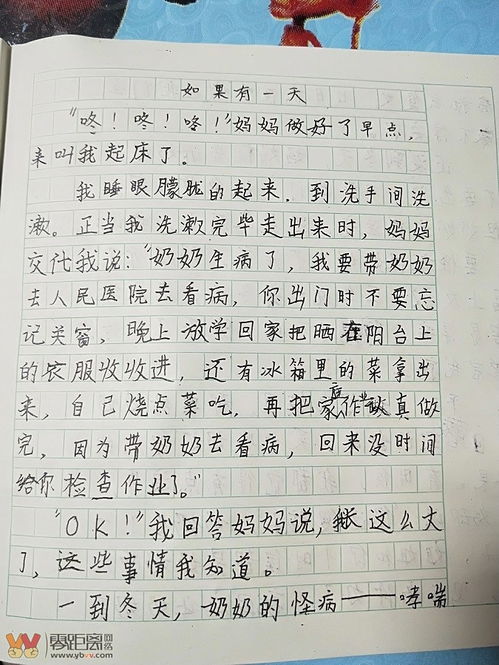 如果有一天
“咚！咚！咚！”妈妈做好了早点，
来叫我起床了。
我睡眼朦胧的起来．到洗手间洗
漱。正当我洗漱完毕走出来时，妈妈
交代我说：“奶奶生病了，我要带奶奶
去人民医院去看病，你出门时不要忘
记关窗，晚上放学回家把晒在阳台上
的衣服收收进，还有冰箱里的菜拿出
来，自己烧点菜吃，再把家庭作业认真做
完，因为带奶奶去看病，回来没时间
给你检查作业了。”
“OK！”我回答妈妈说，我长这么大
了，这些事情我知道。
一到冬天，奶奶的怪病——哮喘
零距离网络
www.ybvv.com